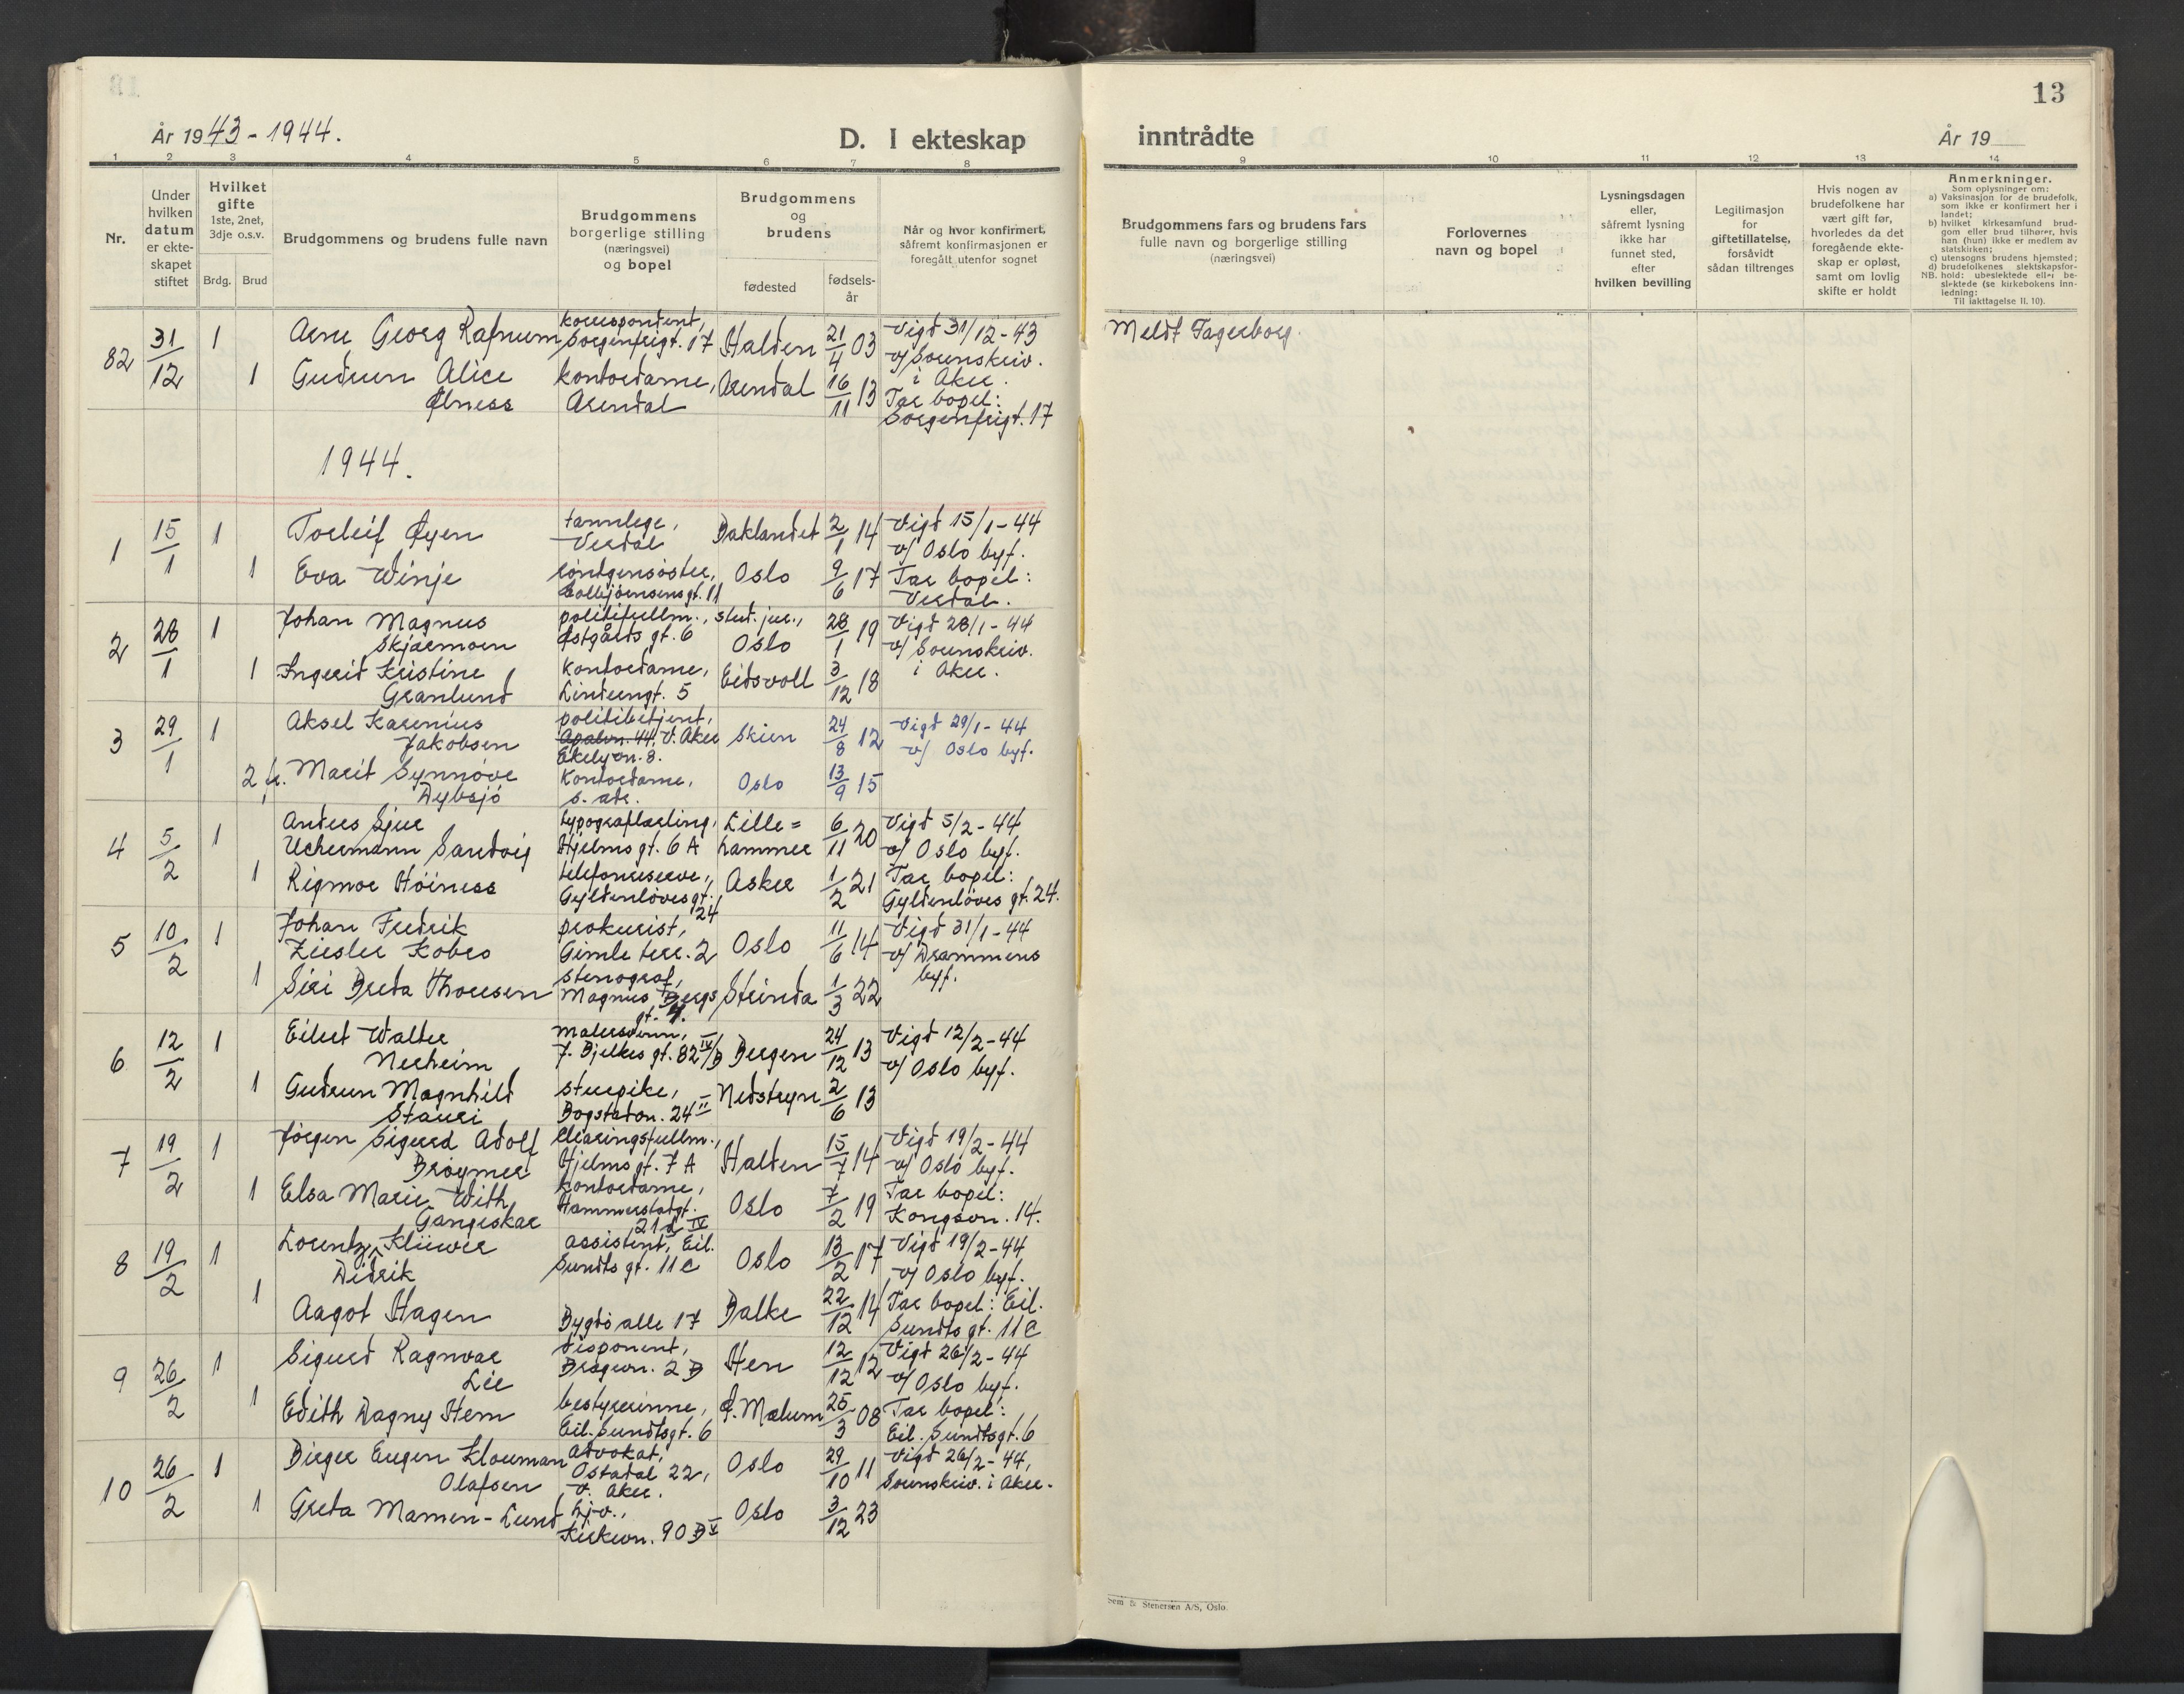 13
År 1943 - 1944.
D. I ekteskap
inntrådte
År 19
1 2 3 4 5 6 7 8 9 10 11 12 13 14
Nr.
Under hvilken datum er ekteskapet stiftet
Hvilket gifte 1ste, 2net, 3dje o.s.v.
Brdg. Brud
Brudgommens og brudens fulle navn
Brudgommens borgerlige stilling (næringsvei) og bopel
Brudgommens og brudens
fødested
fødsels-år
Når og hvor konfirmert, såfremt konfirmasjonen er foregått utenfor sognet
Brudgommens fars og brudens fars fulle navn og borgerlige stilling (næringsvei)
Forlovernes navn og bopel
Lysningsdagen eller, såfremt lysning ikke har funnet sted, efter hvilken bevilling
Legitimasjon for giftetillatelse, forsåvidt sådan tiltrenges
Hvis nogen av brudefolkene har vært gift før, hvorledes da det foregående ekteskap er opløst, samt om lovlig skifte er holdt
Anmerkninger.
Som oplysninger om:
a) Vaksinasjon for de brudefolk, som ikke er konfirmert her i landet;
b) hvilket kirkesamfund brudgom eller brud tilhører, hvis han (hun) ikke er medlem av statskirken;
c) utensogns brudens hjemsted;
d) brudefolkenes slektskapsforhold: ubeslektede eller beslektede (se kirkebokens innledning:
NB. Til iakttagelse II. 10).
82 31/12 1 Arne Georg Rafnum korrespondent, Sorgenfrigt. 17 Halden 21/4 03 Vigd 31/12-43 v/ Sorenskriv. i Aker.
1 Gudrun Alice Ølness kontordame, Arendal Arendal 16/11 13 Tar bopel: Sorgenfrigt. 17
Meldt Fagerborg.
1944.
1 15/1 1 Torleif Øyen tannlege, Verdal Baklandet 2/1 14 Vigd 15/1-44 v/ Oslo byf.
1 Eva Winje röntgensöster, Collbjörnsensgt. 11 Oslo 9/6 17 Tar bopel: Verdal.
2 28/1 1 Johan Magnus Skjærmoen politifullm., stud. jur., Østgårds gt. 6 Oslo 28/1 19 Vigd 28/1-44 v/ Sorenskriv. i Aker.
1 Ingerid Kristine Granlund kontordame, Linderngt. 5 Eidsvoll 3/12 18
3 29/1 1 Aksel Karenius Jakobsen politibetjent, Apalvn. 44, V. Aker Ekelyvn. 8. Skien 24/8 12 Vigd 29/1-44 v/ Oslo byf.
2 fr. Marit Synnöve Dybsjö kontordame, s. adr. Oslo 13/9 15
4 5/2 1 Anders Sjur Uchermann Sandvig typograflærling, Hjelms gt. 6 A Lille=hammer 6/11 20 Vigd 5/2-44 v/ Oslo byf.
1 Rigmor Höiness telefonreserve, Gyldenlöves gt. 24 Asker 1/2 21 Tar bopel: Gyldenlöves gt. 24.
5 10/2 1 Johan Fredrik Ziesler Kobro prokurist, Gimle terr. 2 Oslo 11/6 14 Vigd 31/1-44 v/ Drammens byf.
1 Siri Breta Thoresen stenograf, Magnus Bergs gt. 7. Strinda 1/3 22
6 12/2 1 Eilert Walter Nerheim malersvenn, J. Bjelkes gt. 82 IV/B Bergen 24/12 13 Vigd 12/2-44 v/ Oslo byf.
1 Gudrun Magnhild Stauri stuepike, Bogstadvn. 24 II Nedstryn 2/6 13
7 19/2 1 Jörgen Sigurd Adolf Bröymer clearingsfullm., Hjelms gt. 7 A Halden 15/7 14 Vigd 19/2-44 v/ Oslo byf.
1 Elsa Marie With Gangeskar kontordame, Hammerstadgt. 21 d IV Oslo 7/2 19 Tar bopel: Kongsvn. 14.
8 19/2 1 Lorentz Didrik Klüwer assistent, Eil. Sundts gt. 11 C Oslo 13/2 17 Vigd 19/2-44 v/ Oslo byf.
1 Aagot Hagen Bygdö alle 17 Balke 22/12 14 Tar bopel: Eil. Sundts gt. 11 C
9 26/2 1 Sigurd Ragnvar Lie disponent, Bragevn. 2 B Hen 12/12 12 Vigd 26/2-44 v/ Oslo byf.
1 Edith Dagny Hem bestyrerinne, Eil. Sundtsgt. 6 Ø. Mælum 25/3 08 Tar bopel: Eil. Sundtsgt. 6
10 26/2 1 Birger Eugen Klouman Olafsen advokat, Ostadal 22, V. Aker. Oslo 29/10 11 Vigd 26/2-44, Sorenskriv. i Aker.
1 Greta Mamen-Lund hjv., Kirkevn. 90 B V Oslo 3/12 23
Sem & Stenersen A/S, Oslo.